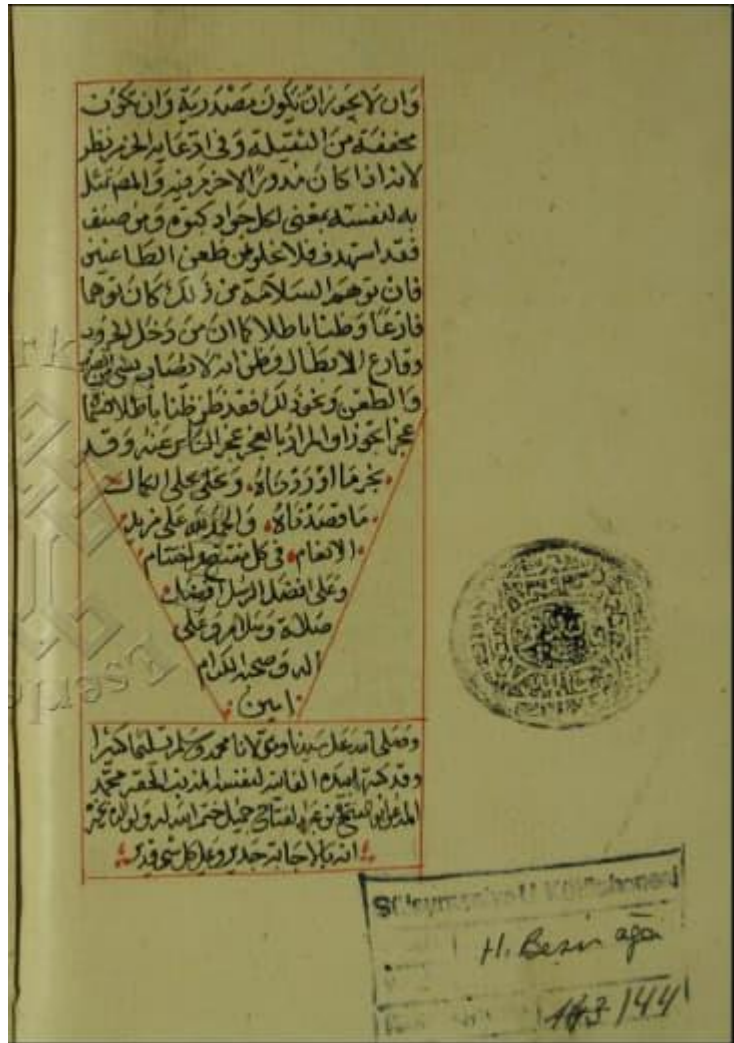 وان لا يجوز ان تكون مصدرية وان تكون
مخففة من الثقيلة وفي ادعايه الحزم نظر
لانه اذا كان مدورا لاخرم فيه والمص تمثل
به لنفسه بمعنى لكل جواد كبوة ومن صنف
فقد استهدف فلا يخلو من طعن الطاعنين
فان توهم السلامة من ذلك كان توهما
فارغا وظنا باطلا كما ان من دخل الحروب
وقارع الابطال وظن انه لا يصاب بشي من الضرب
والطعن ونحو ذلك فقد ظن ظنا باطلا
عجزا يجوز او المراد بالعجز عجز الناس عنه وقد
نجز ما اوردناه وعلى على الكمال
ما قصدناه والحمد لله على مزيد
الانعام في كل مفتتح واختتام
وعلى افضل الرسل افضل
صلاة وسلام وعلى
اله وصحبه الكرام
امين
وصلى الله على سيدنا ومولانا محمد وسلم تسليما كثيرا
وقد كتبه بيده الفانيه لنفسه المذنب الحقير محمد
المدعو ابو الفتح بن عبد الفتاح جميل ختم الله له ولوالديه بخير
انه بالاجابة جدير وعلى كل شي قدير
Süleymaniye U Kütüphanesi
H. Beşir ağa
143/44